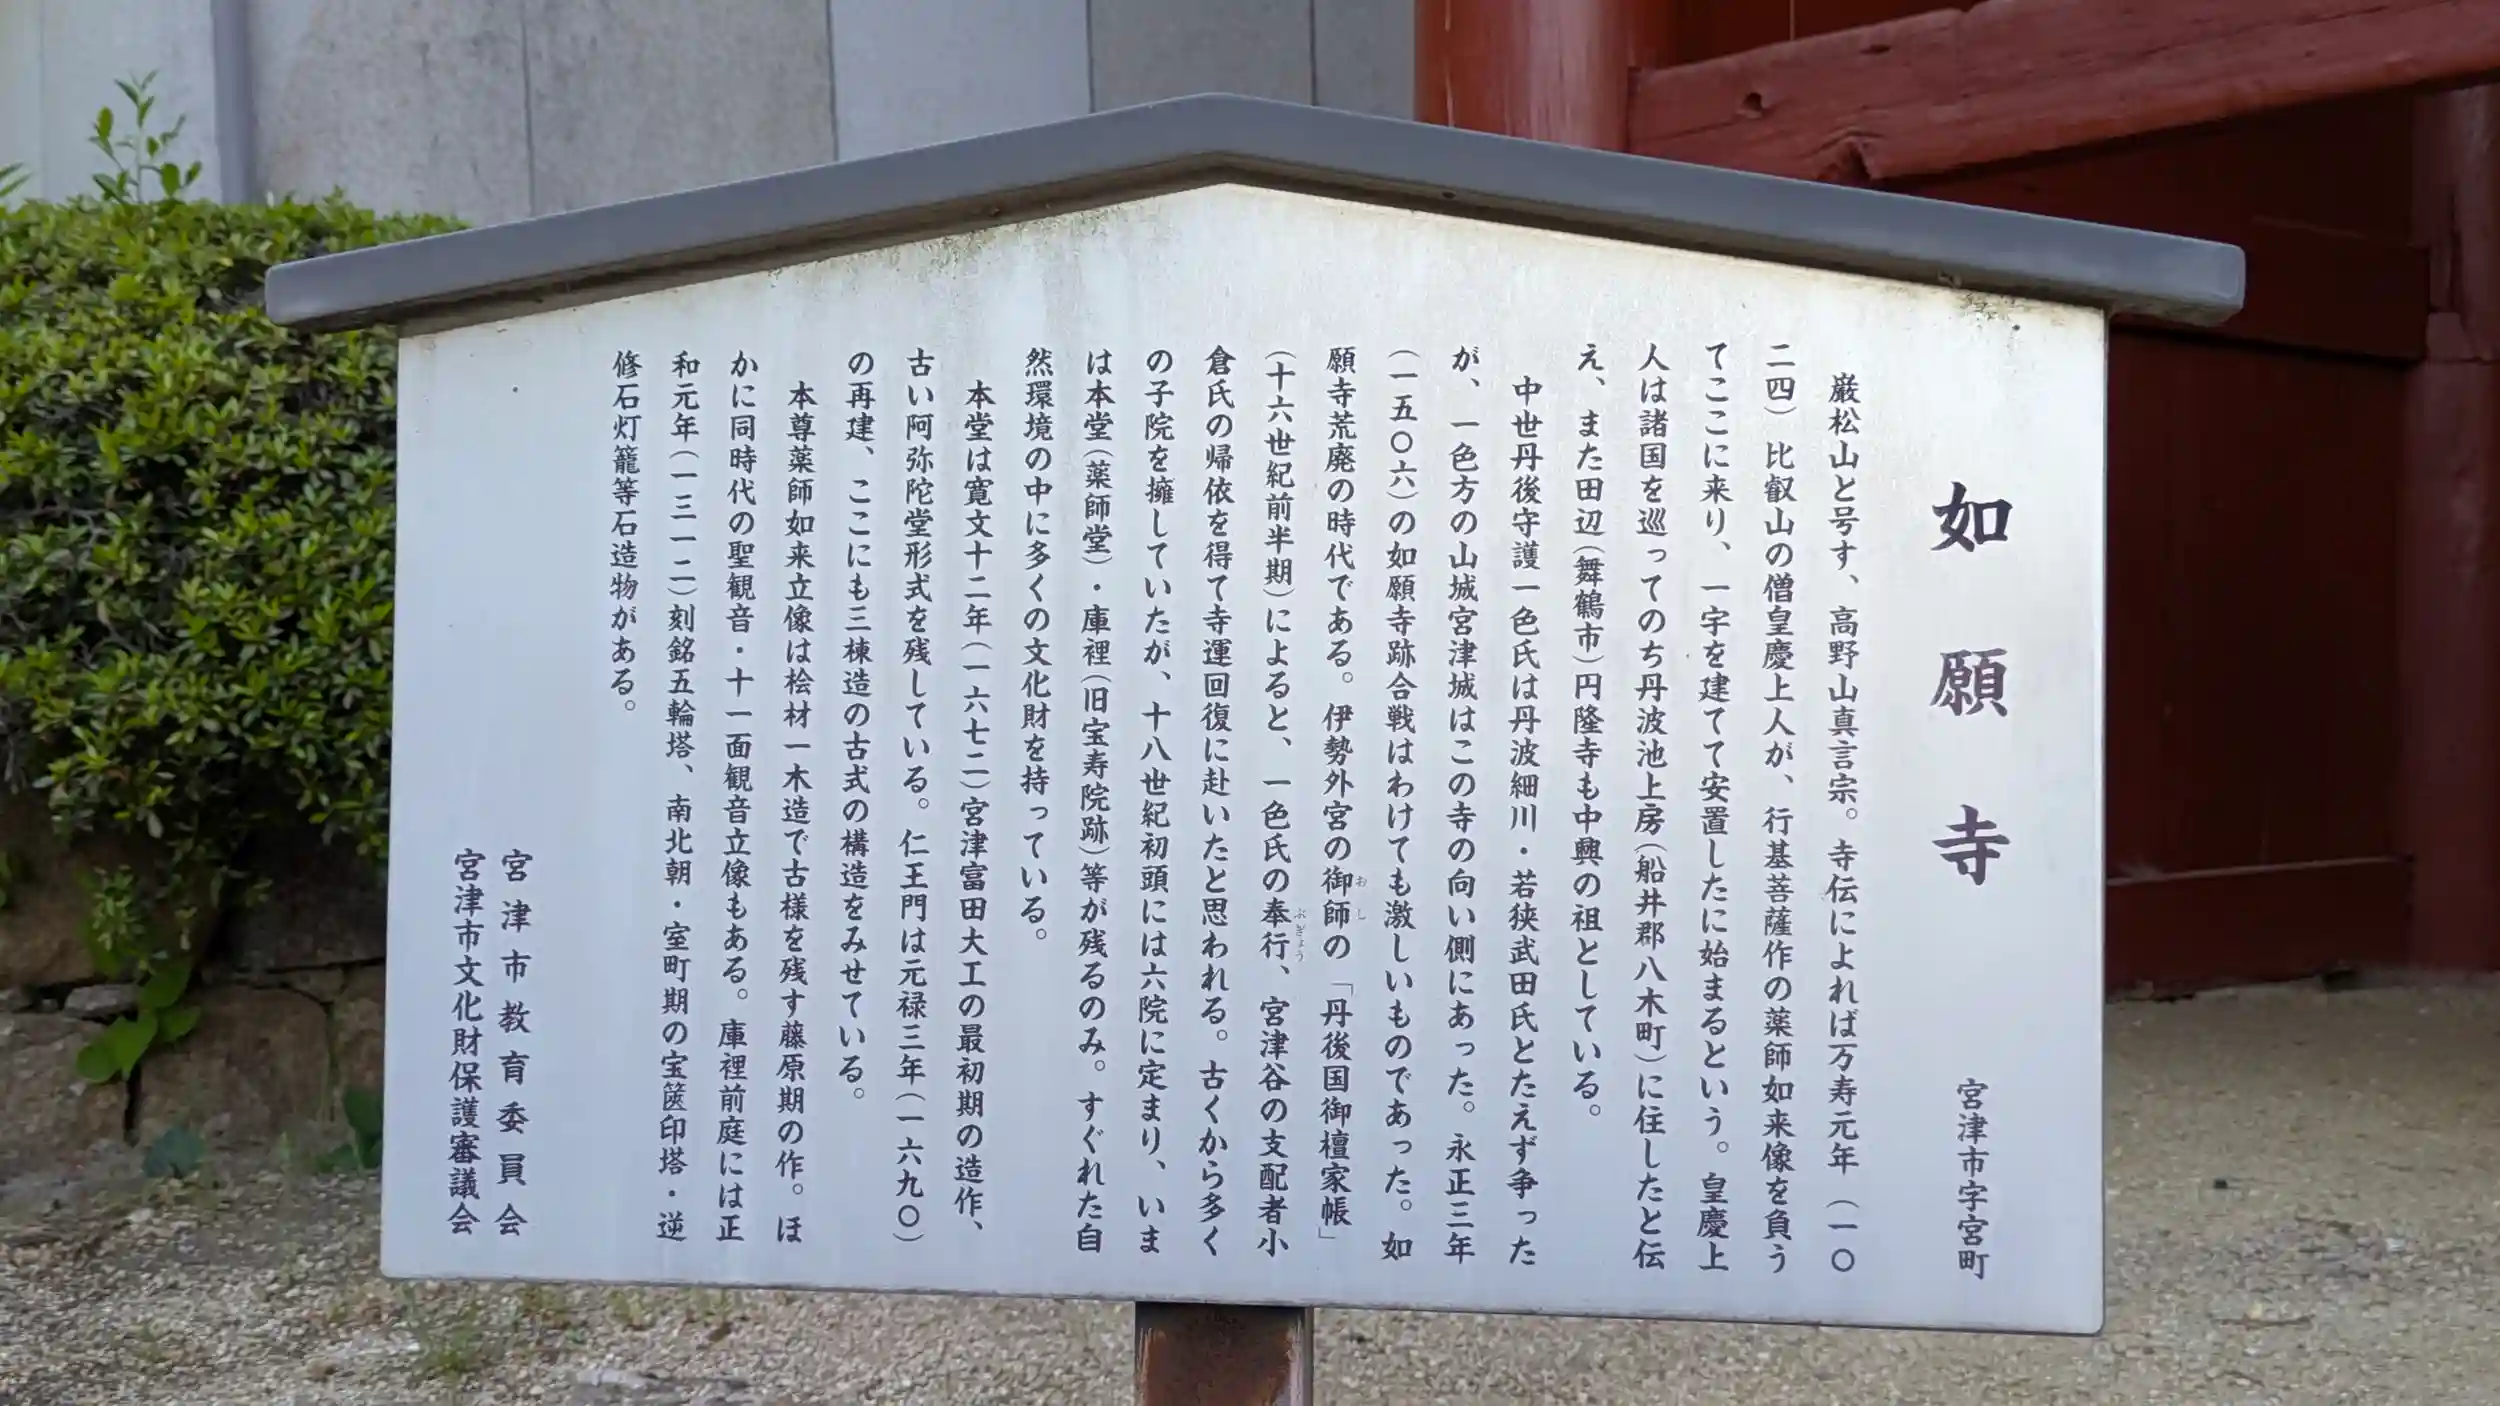 如願寺
宮津市字宮町
巌松山と号す、高野山真言宗。寺伝によれば万寿元年（一〇
二四）比叡山の僧皇慶上人が、行基菩薩作の薬師如来像を負う
てここに来り、一宇を建てて安置したに始まるという。皇慶上
人は諸国を巡ってのち丹波池上房（船井郡八木町）に住したと伝
え、また田辺（舞鶴市）円隆寺も中興の祖としている。
中世丹後守護一色氏は丹波細川・若狭武田氏とたえず争った
が、一色方の山城宮津城はこの寺の向い側にあった。永正三年
（一五〇六）の如願寺跡合戦はわけても激しいものであった。如
願寺荒廃の時代である。伊勢外宮の御師の「丹後国御檀家帳」
おし
（十六世紀前半期）によると、一色氏の奉行、宮津谷の支配者小
ぶぎょう
倉氏の帰依を得て寺運回復に赴いたと思われる。古くから多く
の子院を擁していたが、十八世紀初頭には六院に定まり、いま
は本堂（薬師堂）・庫裡（旧宝寿院跡）等が残るのみ。すぐれた自
然環境の中に多くの文化財を持っている。
本堂は寛文十二年（一六七二）宮津富田大工の最初期の造作、
古い阿弥陀堂形式を残している。仁王門は元禄三年（一六九〇）
の再建、ここにも三棟造の古式の構造をみせている。
本尊薬師如来立像は桧材一木造で古様を残す藤原期の作。ほ
かに同時代の聖観音・十一面観音立像もある。庫裡前庭には正
和元年（一三一二）刻銘五輪塔、南北朝・室町期の宝篋印塔・逆
修石灯籠等石造物がある。
宮津市教育委員会
宮津市文化財保護審議会